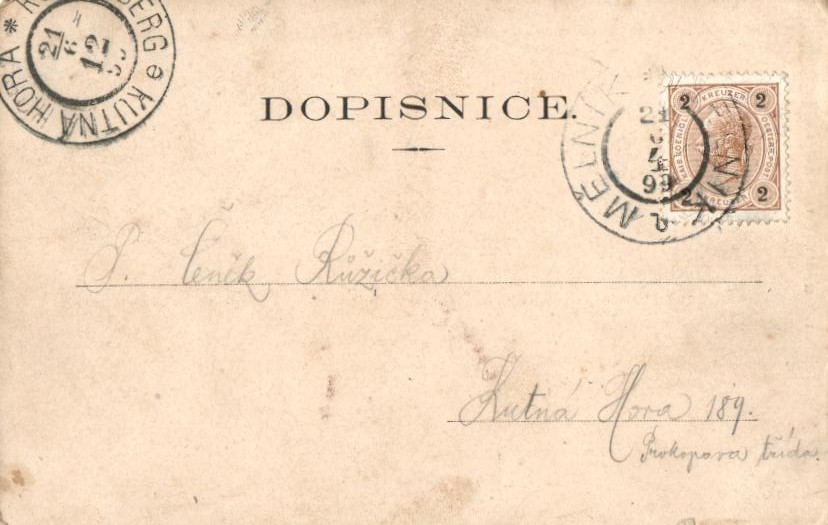 KUTNÁ HORA
21
6
12
99
DOPISNICE.
MĚLNÍK
21
6
4
99
2 KREUZER 2
2 KREUZER 2
P. Čeněk Růžička
Kutná Hora 189.
Prokopova třída.